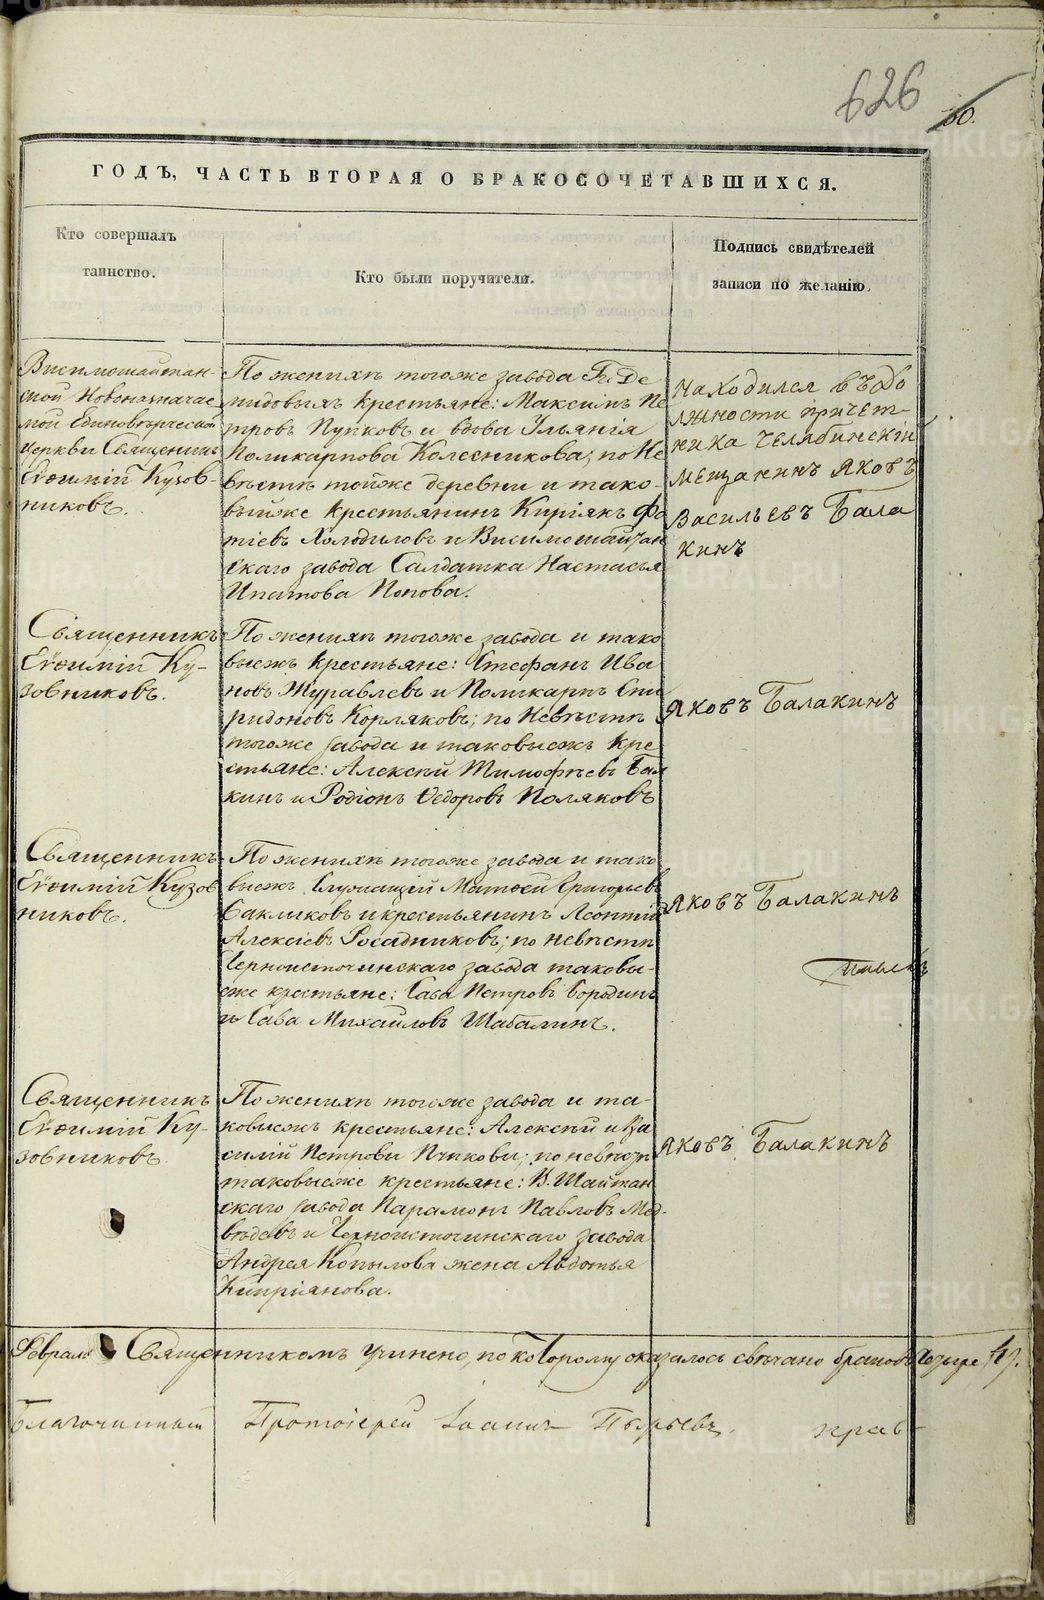 626
60.
ГОДЪ, ЧАСТЬ ВТОРАЯ О БРАКОСОЧЕТАВШИХСЯ.
Кто совершалъ
таинство.
Кто были поручители.
Подпись свидѣтелей
записи по желанію.
Висимошайтан-
ской Новоназначае
мой Единовѣрческой
Церкви Священникъ
Евѳимій Кузов-
никовъ.
По женихѣ тогоже завода Гг. Де
мидовыхъ крестьяне: Максимъ Пе
тровъ Пупковъ и вдова Ульянія
Поликарпова Колесникова; по Не
вѣстѣ тойже деревни и тако-
выйже крестьянинъ Киріякъ Фо
тіевъ Холодиловъ и Висимошайтан
скаго завода Салдатка Настасья
Ипатова Попова.
Находился въ до
лжности причет-
ника Челябинскій
мещанинъ Яковъ
Васильевъ Бала
кинъ
Священникъ
Евѳимій Ку-
зовниковъ.
По женихѣ тогоже завода и тако
выежъ крестьяне: Стефанъ Ива
новъ Журавлевъ и Поликарпъ Спи
ридоновъ Корляковъ; по Невѣстѣ
тогоже завода и таковыежъ кре
стьяне: Алексѣй Тимофѣевъ Бал
кинъ и Родіонъ Ѳедоровъ Поляковъ
Яковъ Балакинъ
Священникъ
Евѳимій Кузов
никовъ.
По женихѣ тогоже завода и тако
выежъ Служащій Матѳей Григорьевъ
Бакликовъ и крестьянинъ Леонтій
Алексіевъ Росадниковъ; по невѣстѣ
Черноисточинскаго завода таковы-
еже крестьяне: Сава Петровъ Бородинъ
и Сава Михайловъ Шабалинъ.
Яковъ Балакинъ
Священникъ
Евѳимій Ку-
зовниковъ.
По женихѣ тогоже завода и та-
ковыежъ крестьяне: Алексѣй и Ва
силій Петровы Пчиковы; по невѣстѣ
таковыеже крестьяне: В. Шайтан
скаго завода Парамонъ Павловъ Мед-
вѣдевъ и Черноисточинскаго завода
Андрея Копылова жена Авдотья
Кипріянова.
Яковъ Балакинъ
Февраль Священникомъ учинено, по которому оказалось свѣнчано браковъ четыре (4).
Благочинный Протоіерей Іоаннъ Пырьевъ.
METRIKI.GASO-URAL.RU